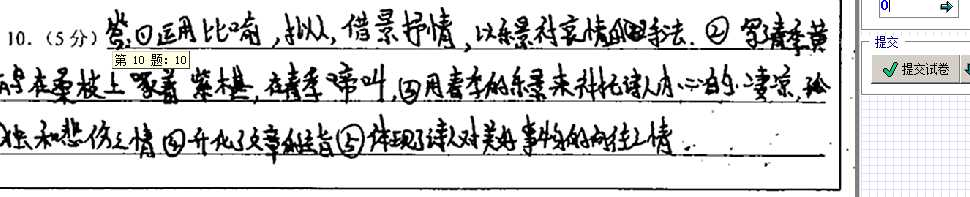 10.（5分）答：①运用比喻，拟人，借景抒情，以乐景衬哀情的手法．②写春季黄
在桑枝上啄着紫椹，在春季啼叫，③用春季的乐景来衬托诗人内心的凄凉，孤
独和悲伤之情④升化了文章的主旨⑤体现了诗人对美好事物的向往之情．
第 10 题: 10
0
提交
提交试卷